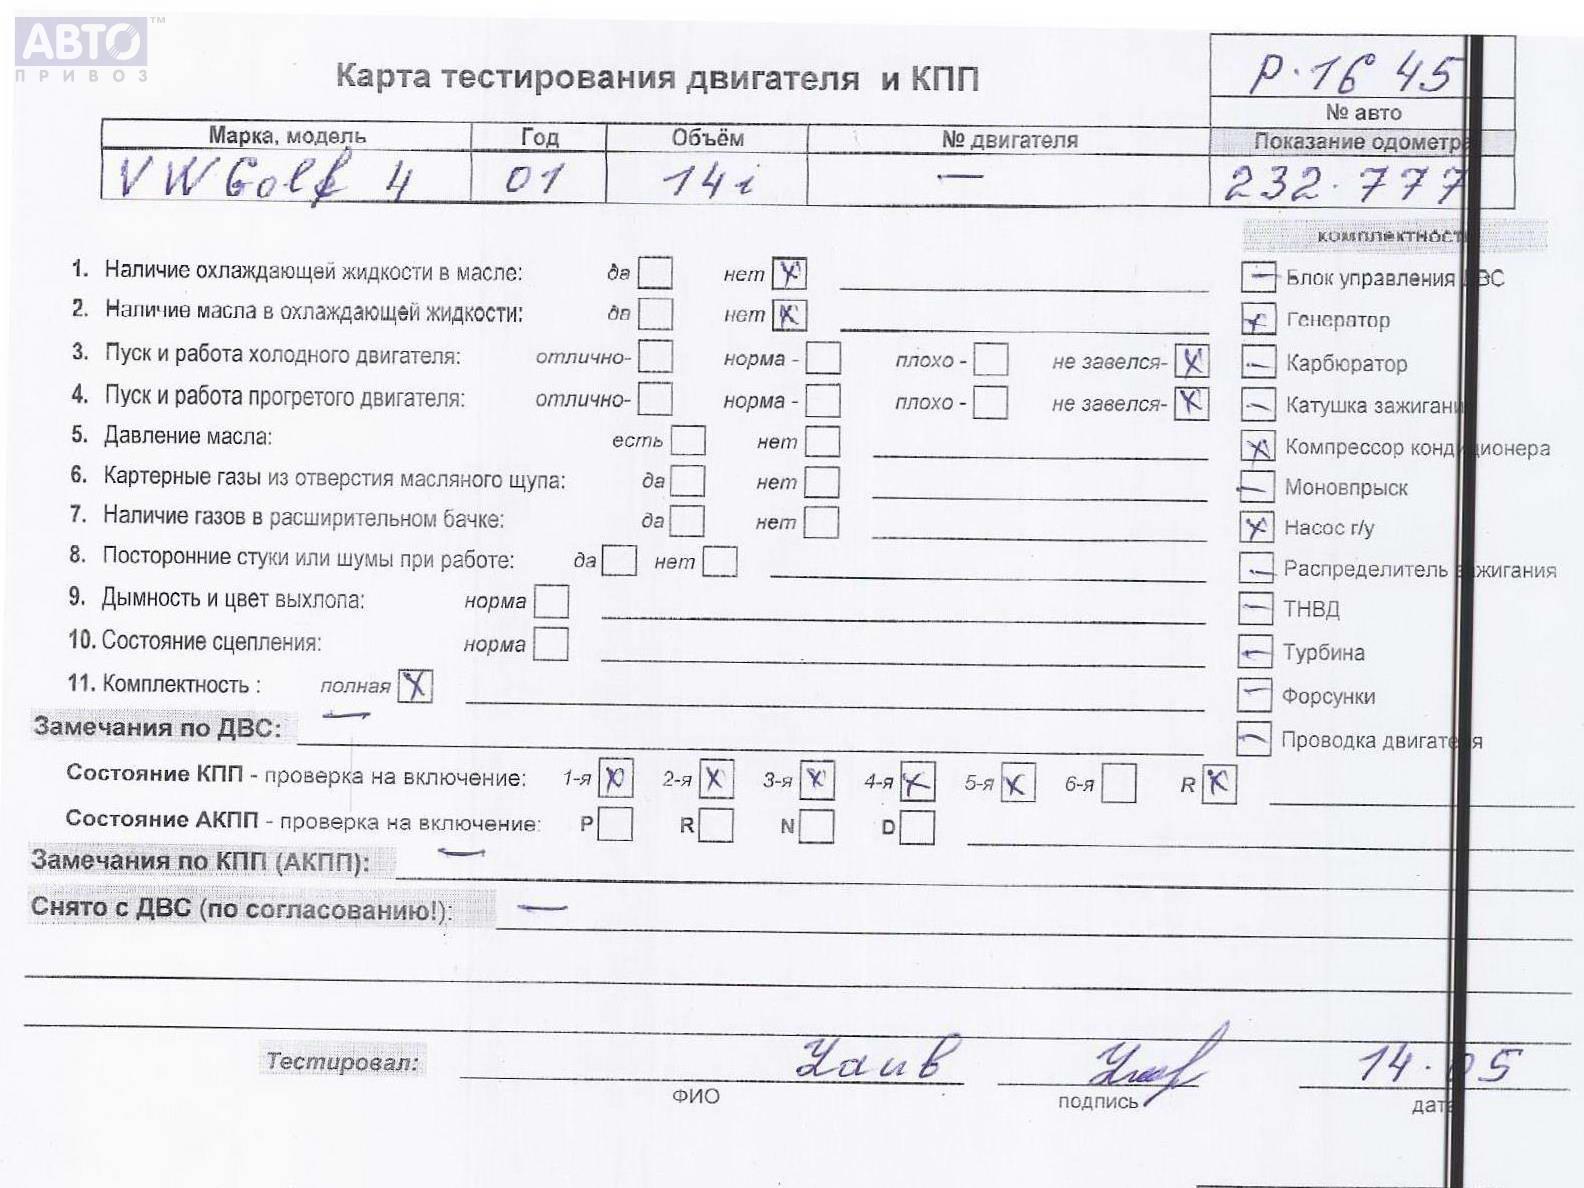 АВТО™
ПРИВОЗ
Карта тестирования двигателя и КПП
Р.16 45
№ авто
Марка, модель Год Объём № двигателя Показание одометра
VW Golf 4 01 14i — 232.777
комплектность
1. Наличие охлаждающей жидкости в масле: да нет X
Блок управления ДВС
2. Наличие масла в охлаждающей жидкости: да нет X
Генератор
3. Пуск и работа холодного двигателя: отлично- норма - плохо - не завелся- X
Карбюратор
4. Пуск и работа прогретого двигателя: отлично- норма - плохо - не завелся- X
Катушка зажигания
5. Давление масла: есть нет
Компрессор кондиционера
6. Картерные газы из отверстия масляного щупа: да нет
Моновпрыск
7. Наличие газов в расширительном бачке: да нет
Насос г/у
8. Посторонние стуки или шумы при работе: да нет
Распределитель зажигания
9. Дымность и цвет выхлопа: норма
ТНВД
10. Состояние сцепления: норма
Турбина
11. Комплектность : полная X
Форсунки
Замечания по ДВС: —
Проводка двигателя
Состояние КПП - проверка на включение: 1-я X 2-я X 3-я X 4-я X 5-я X 6-я R X
Состояние АКПП - проверка на включение: P R N D
Замечания по КПП (АКПП): —
Снято с ДВС (по согласованию!): —
Тестировал: 14.05
ФИО подпись дата